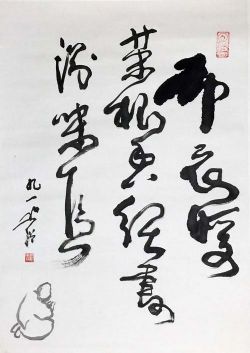 布衣暖
菜根香書
滋味長
九一